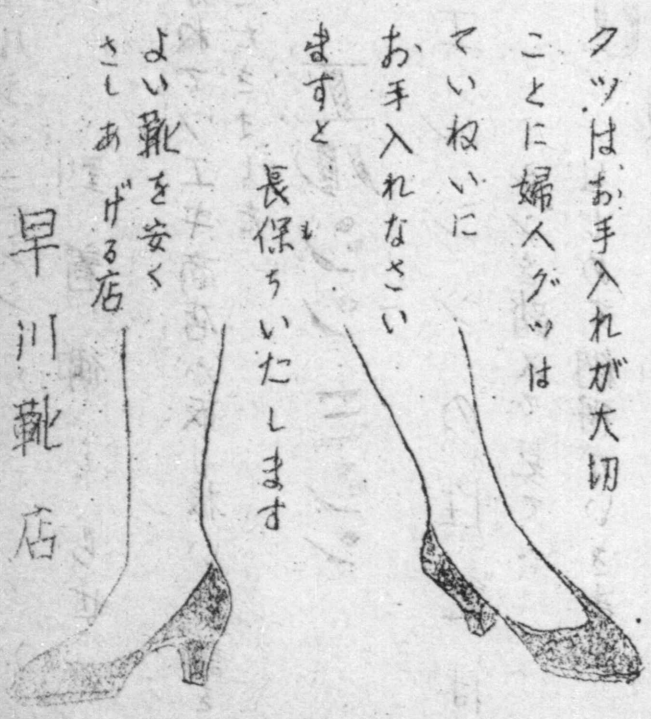 クツはお手入れが大切
ことに婦人グツは
ていねいに
お手入れなさい
ますと
長保ちいたします
よい靴を安く
さしあげる店
早川靴店